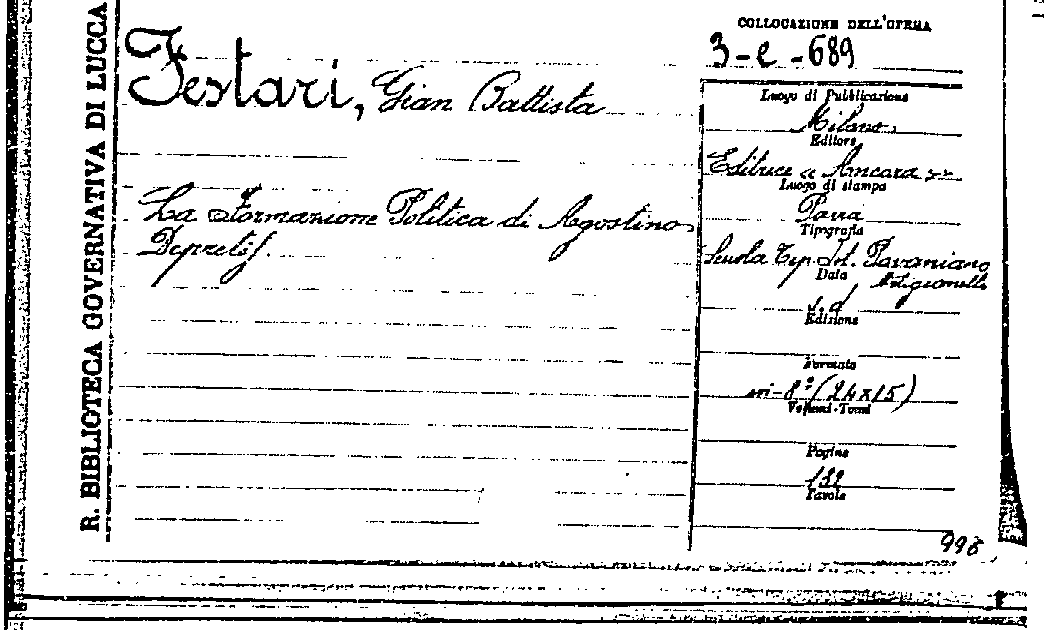 R. BIBLIOTECA GOVERNATIVA DI LUCCA
Festari, Gian Battista
La Formazione Politica di Agostino
Depretis.
COLLOCAZIONE DELL'OPERA
3-e-689
Luogo di Pubblicazione
Milano
Editore
Editrice "Ancora"
Luogo di stampa
Pavia
Tipografia
Scuola Tip. Ist. Pavoniano
Artigianelli
Data
s.d.
Edizione
Formato
in-8° (24x15)
Volumi-Tomi
Pagine
132
Tavole
998